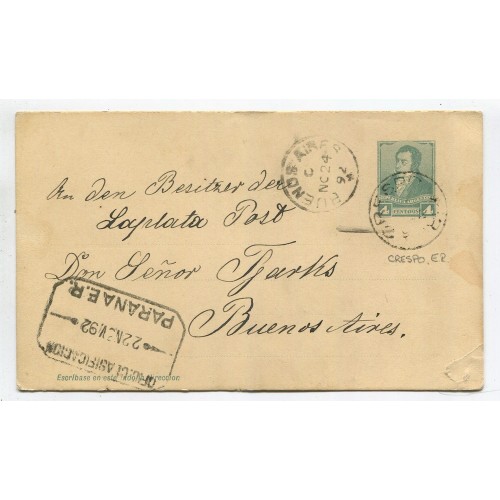 BUENOS AIRES
C
NO 24
92
4 CENTAVOS 4
CRESPO E.R.
An den Besitzer der
Laplata Post
Don Señor Tjarks
Buenos Aires.
CRESPO, ER.
PARANA E.R.
22NOV92
OFNA CLASIFICACION
Escríbase en este lado la dirección